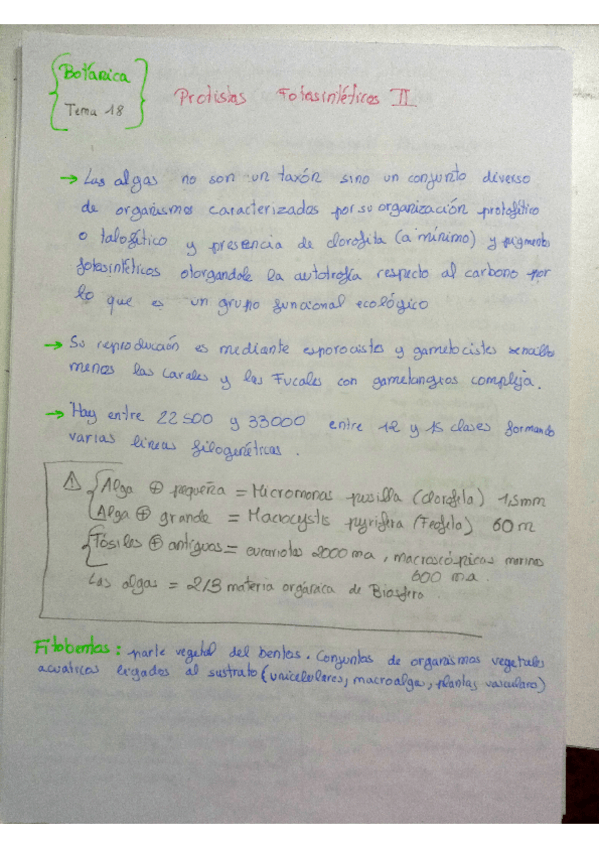 Botánica
Tema 18
Protistas Fotosintéticos II
→ Las algas no son un taxón sino un conjunto diverso
de organismos caracterizados por su organización protofítico
o talofítico y presencia de clorofila (a mínimo) y pigmentos
fotosintéticos otorgandole la autotrofía respecto al carbono por
lo que es un grupo funcional ecológico
→ Su reproducción es mediante esporocistes y gametocistes sencillos
menos las Carales y las Fucales con gametangios compleja.
→ Hay entre 22500 y 33000 entre 12 y 15 clases formando
varias lineas filogenéticas.
⚠ Alga ⊕ pequeña = Micromonas pusilla (Clorofila) 1,5mm
Alga ⊕ grande = Macrocystis pyrifera (Feofila) 60 m
Fósiles ⊕ antiguos = eucariotas 2000 ma, macroscópicas marinas
600 ma.
Las algas = 2/3 materia orgánica de Biosfera.
Fitobentos: parte vegetal del bentos. Conjuntos de organismos vegetales
acuáticos ligados al sustrato (unicelulares, macroalga, plantas vasculares)